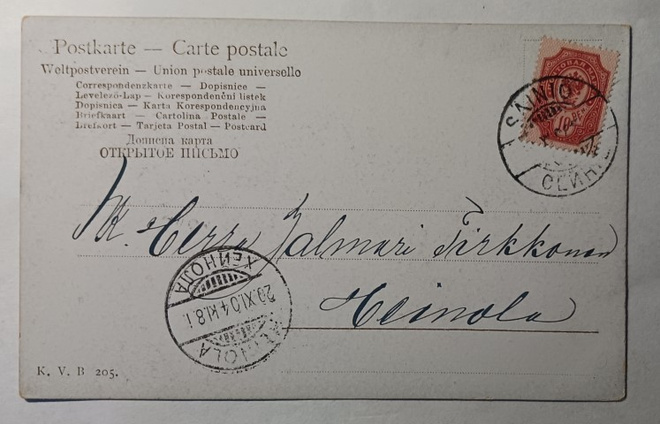 Postkarte — Carte postale
Weltpostverein — Union postale universelle
Correspondenzkarte — Dopisnice —
Levelező-Lap — Korespondenční listek
Dopisnica — Karta Korespondencyjna
Briefkaart — Cartolina Postale —
Brefkort — Tarjeta Postal — Postcard
Дописна карта
ОТКРЫТОЕ ПИСЬМО
SAINIO
СЕЙН
K. Herra Jalmari Tirkkonen
Heinola
ХЕЙНОЛА
20.XI.04 Kl.8.i
HEINOLA
K. V. B 205.